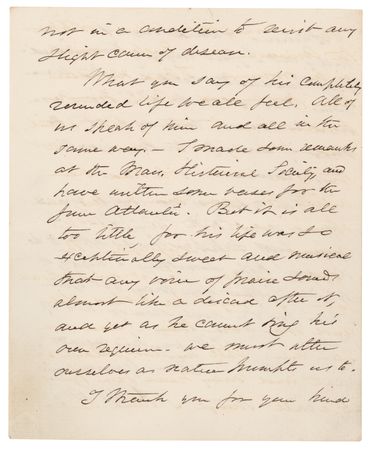 not in a condition to resist any
slight cause of disease.
What you say of his completely
rounded life we all feel. All of
us speak of him and all in the
same way. – I made some remarks
at the Mass. Historical Society and
have written some verses for the
June Atlantic. But it is all
too little for his life was so
exceptionally sweet and musical
that any voice of praise sounds
almost like a discord after it,
and yet as he cannot sing his
own requiem we must utter
ourselves as nature prompts us to.
I thank you for your kind